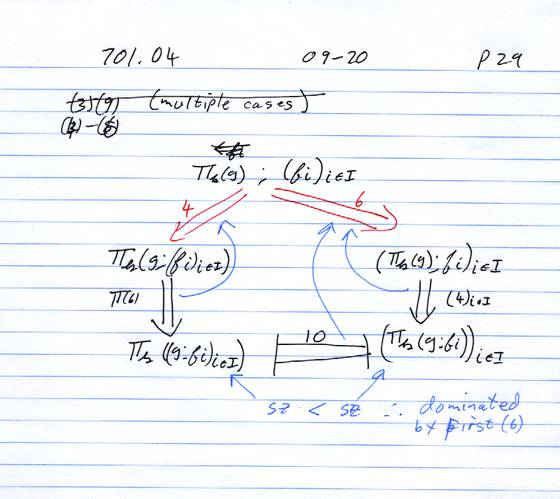 701.04 09-20 P29
(3)(9) (multiple cases)
Π_k(g) ; (fi)i∈I
4 6
Π_k(g;(fi)i∈I) (Π_k(g);fi)i∈I
Π(6) (4)i∈I
Π_k((g;fi)i∈I) 10 (Π_k(g;fi))i∈I
sz < sz ∴ dominated
by first (6)